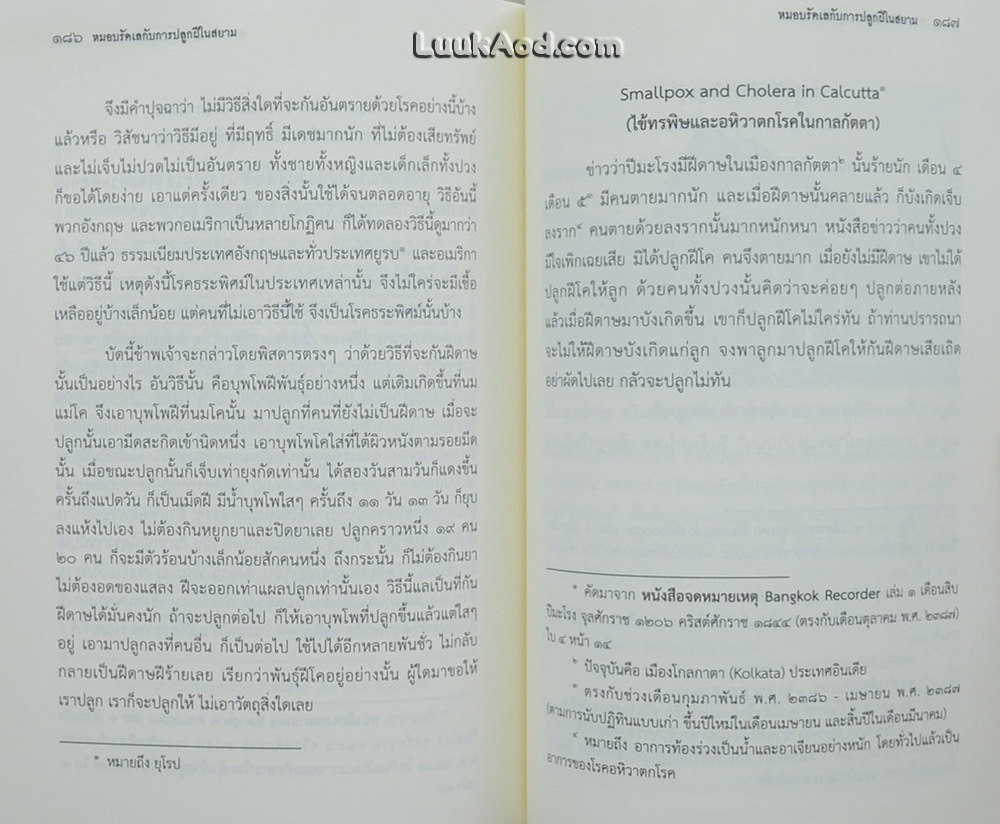 LuukAod.com
๑๘๖ หมอบรัดเลกับการปลูกฝีในสยาม
จึงมีคำปุจฉาว่า ไม่มีวิธีสิ่งใดที่จะกันอันตรายด้วยโรคอย่างนี้บ้าง
แล้วหรือ วิสัชนาว่าวิธีมีอยู่ ที่มีฤทธิ์ มีเดชมากนัก ที่ไม่ต้องเสียทรัพย์
และไม่เจ็บไม่ปวดไม่เป็นอันตราย ทั้งชายทั้งหญิงและเด็กเล็กทั้งปวง
ก็ขอได้โดยง่าย เอาแต่ครั้งเดียว ของสิ่งนั้นใช้ได้จนตลอดอายุ วิธีอันนี้
พวกอังกฤษ และพวกอเมริกาเป็นหลายโกฏิคน ก็ได้ทดลองวิธีนี้ดูมากว่า
๔๖ ปีแล้ว ธรรมเนียมประเทศอังกฤษและทั่วประเทศยูรบ* และอเมริกา
ใช้แต่วิธีนี้ เหตุดังนี้โรคธระพิศม์ในประเทศเหล่านั้น จึงไม่ใคร่จะมีเชื้อ
เหลืออยู่บ้างเล็กน้อย แต่คนที่ไม่เอาวิธีนี้ใช้ จึงเป็นโรคธระพิศม์นั้นบ้าง
บัดนี้ข้าพเจ้าจะกล่าวโดยพิสดารตรงๆ ว่าด้วยวิธีที่จะกันฝีดาษ
นั้นเป็นอย่างไร อันวิธีนั้น คือบุพโพฝีพันธุ์อย่างหนึ่ง แต่เดิมเกิดขึ้นที่นม
แม่โค จึงเอาบุพโพฝีที่นมโคนั้น มาปลูกที่คนที่ยังไม่เป็นฝีดาษ เมื่อจะ
ปลูกนั้นเอามีดสะกิดเข้านิดหนึ่ง เอาบุพโพโคใส่ที่ใต้ผิวหนังตามรอยมีด
นั้น เมื่อขณะปลูกนั้นก็เจ็บเท่ายุงกัดเท่านั้น ได้สองวันสามวันก็แดงขึ้น
ครั้นถึงแปดวัน ก็เป็นเม็ดฝี มีน้ำบุพโพใสๆ ครั้นถึง ๑๑ วัน ๑๓ วัน ก็ยุบ
ลงแห้งไปเอง ไม่ต้องกินหยูกยาและปิดยาเลย ปลูกคราวหนึ่ง ๑๙ คน
๒๐ คน ก็จะมีตัวร้อนบ้างเล็กน้อยสักคนหนึ่ง ถึงกระนั้น ก็ไม่ต้องกินยา
ไม่ต้องอดของแสลง ฝีจะออกเท่าแผลปลูกเท่านั้นเอง วิธีนี้แลเป็นที่กัน
ฝีดาษได้มั่นคงนัก ถ้าจะปลูกต่อไป ก็ให้เอาบุพโพที่ปลูกขึ้นแล้วแต่ใสๆ
อยู่ เอามาปลูกลงที่คนอื่น ก็เป็นต่อไป ใช้ไปได้อีกหลายพันชั่ว ไม่กลับ
กลายเป็นฝีดาษฝีร้ายเลย เรียกว่าพันธุ์ฝีโคอยู่อย่างนั้น ผู้ใดมาขอให้
เราปลูก เราก็จะปลูกให้ ไม่เอาวัตถุสิ่งใดเลย
* หมายถึง ยุโรป
หมอบรัดเลกับการปลูกฝีในสยาม ๑๘๗
Smallpox and Cholera in Calcutta๑
(ไข้ทรพิษและอหิวาตกโรคในกาลกัตตา)
ข่าวว่าปีมะโรงมีฝีดาษในเมืองกาลกัตตา๒ นั้นร้ายนัก เดือน ๔
เดือน ๕๓ มีคนตายมากนัก และเมื่อฝีดาษนั้นคลายแล้ว ก็บังเกิดเจ็บ
ลงราก๔ คนตายด้วยลงรากนั้นมากหนักหนา หนังสือข่าวว่าคนทั้งปวง
มีใจเพิกเฉยเสีย มิได้ปลูกฝีโค คนจึงตายมาก เมื่อยังไม่มีฝีดาษ เขาไม่ได้
ปลูกฝีโคให้ลูก ด้วยคนทั้งปวงนั้นคิดว่าจะค่อยๆ ปลูกต่อภายหลัง
แล้วเมื่อฝีดาษมาบังเกิดขึ้น เขาก็ปลูกฝีโคไม่ใคร่ทัน ถ้าท่านปรารถนา
จะไม่ให้ฝีดาษบังเกิดแก่ลูก จงพาลูกมาปลูกฝีโคให้กันฝีดาษเสียเถิด
อย่าผัดไปเลย กลัวจะปลูกไม่ทัน
๑ คัดมาจาก หนังสือจดหมายเหตุ Bangkok Recorder เล่ม ๑ เดือนสิบ
ปีมะโรง จุลศักราช ๑๒๐๖ คริสต์ศักราช ๑๘๔๔ (ตรงกับเดือนตุลาคม พ.ศ. ๒๓๘๗)
ใบ ๔ หน้า ๑๔
๒ ปัจจุบันคือ เมืองโกลกาตา (Kolkata) ประเทศอินเดีย
๓ ตรงกับช่วงเดือนกุมภาพันธ์ พ.ศ. ๒๓๘๖ - เมษายน พ.ศ. ๒๓๘๗
(ตามการนับปฏิทินแบบเก่า ขึ้นปีใหม่ในเดือนเมษายน และสิ้นปีในเดือนมีนาคม)
๔ หมายถึง อาการท้องร่วงเป็นน้ำและอาเจียนอย่างหนัก โดยทั่วไปแล้วเป็น
อาการของโรคอหิวาตกโรค